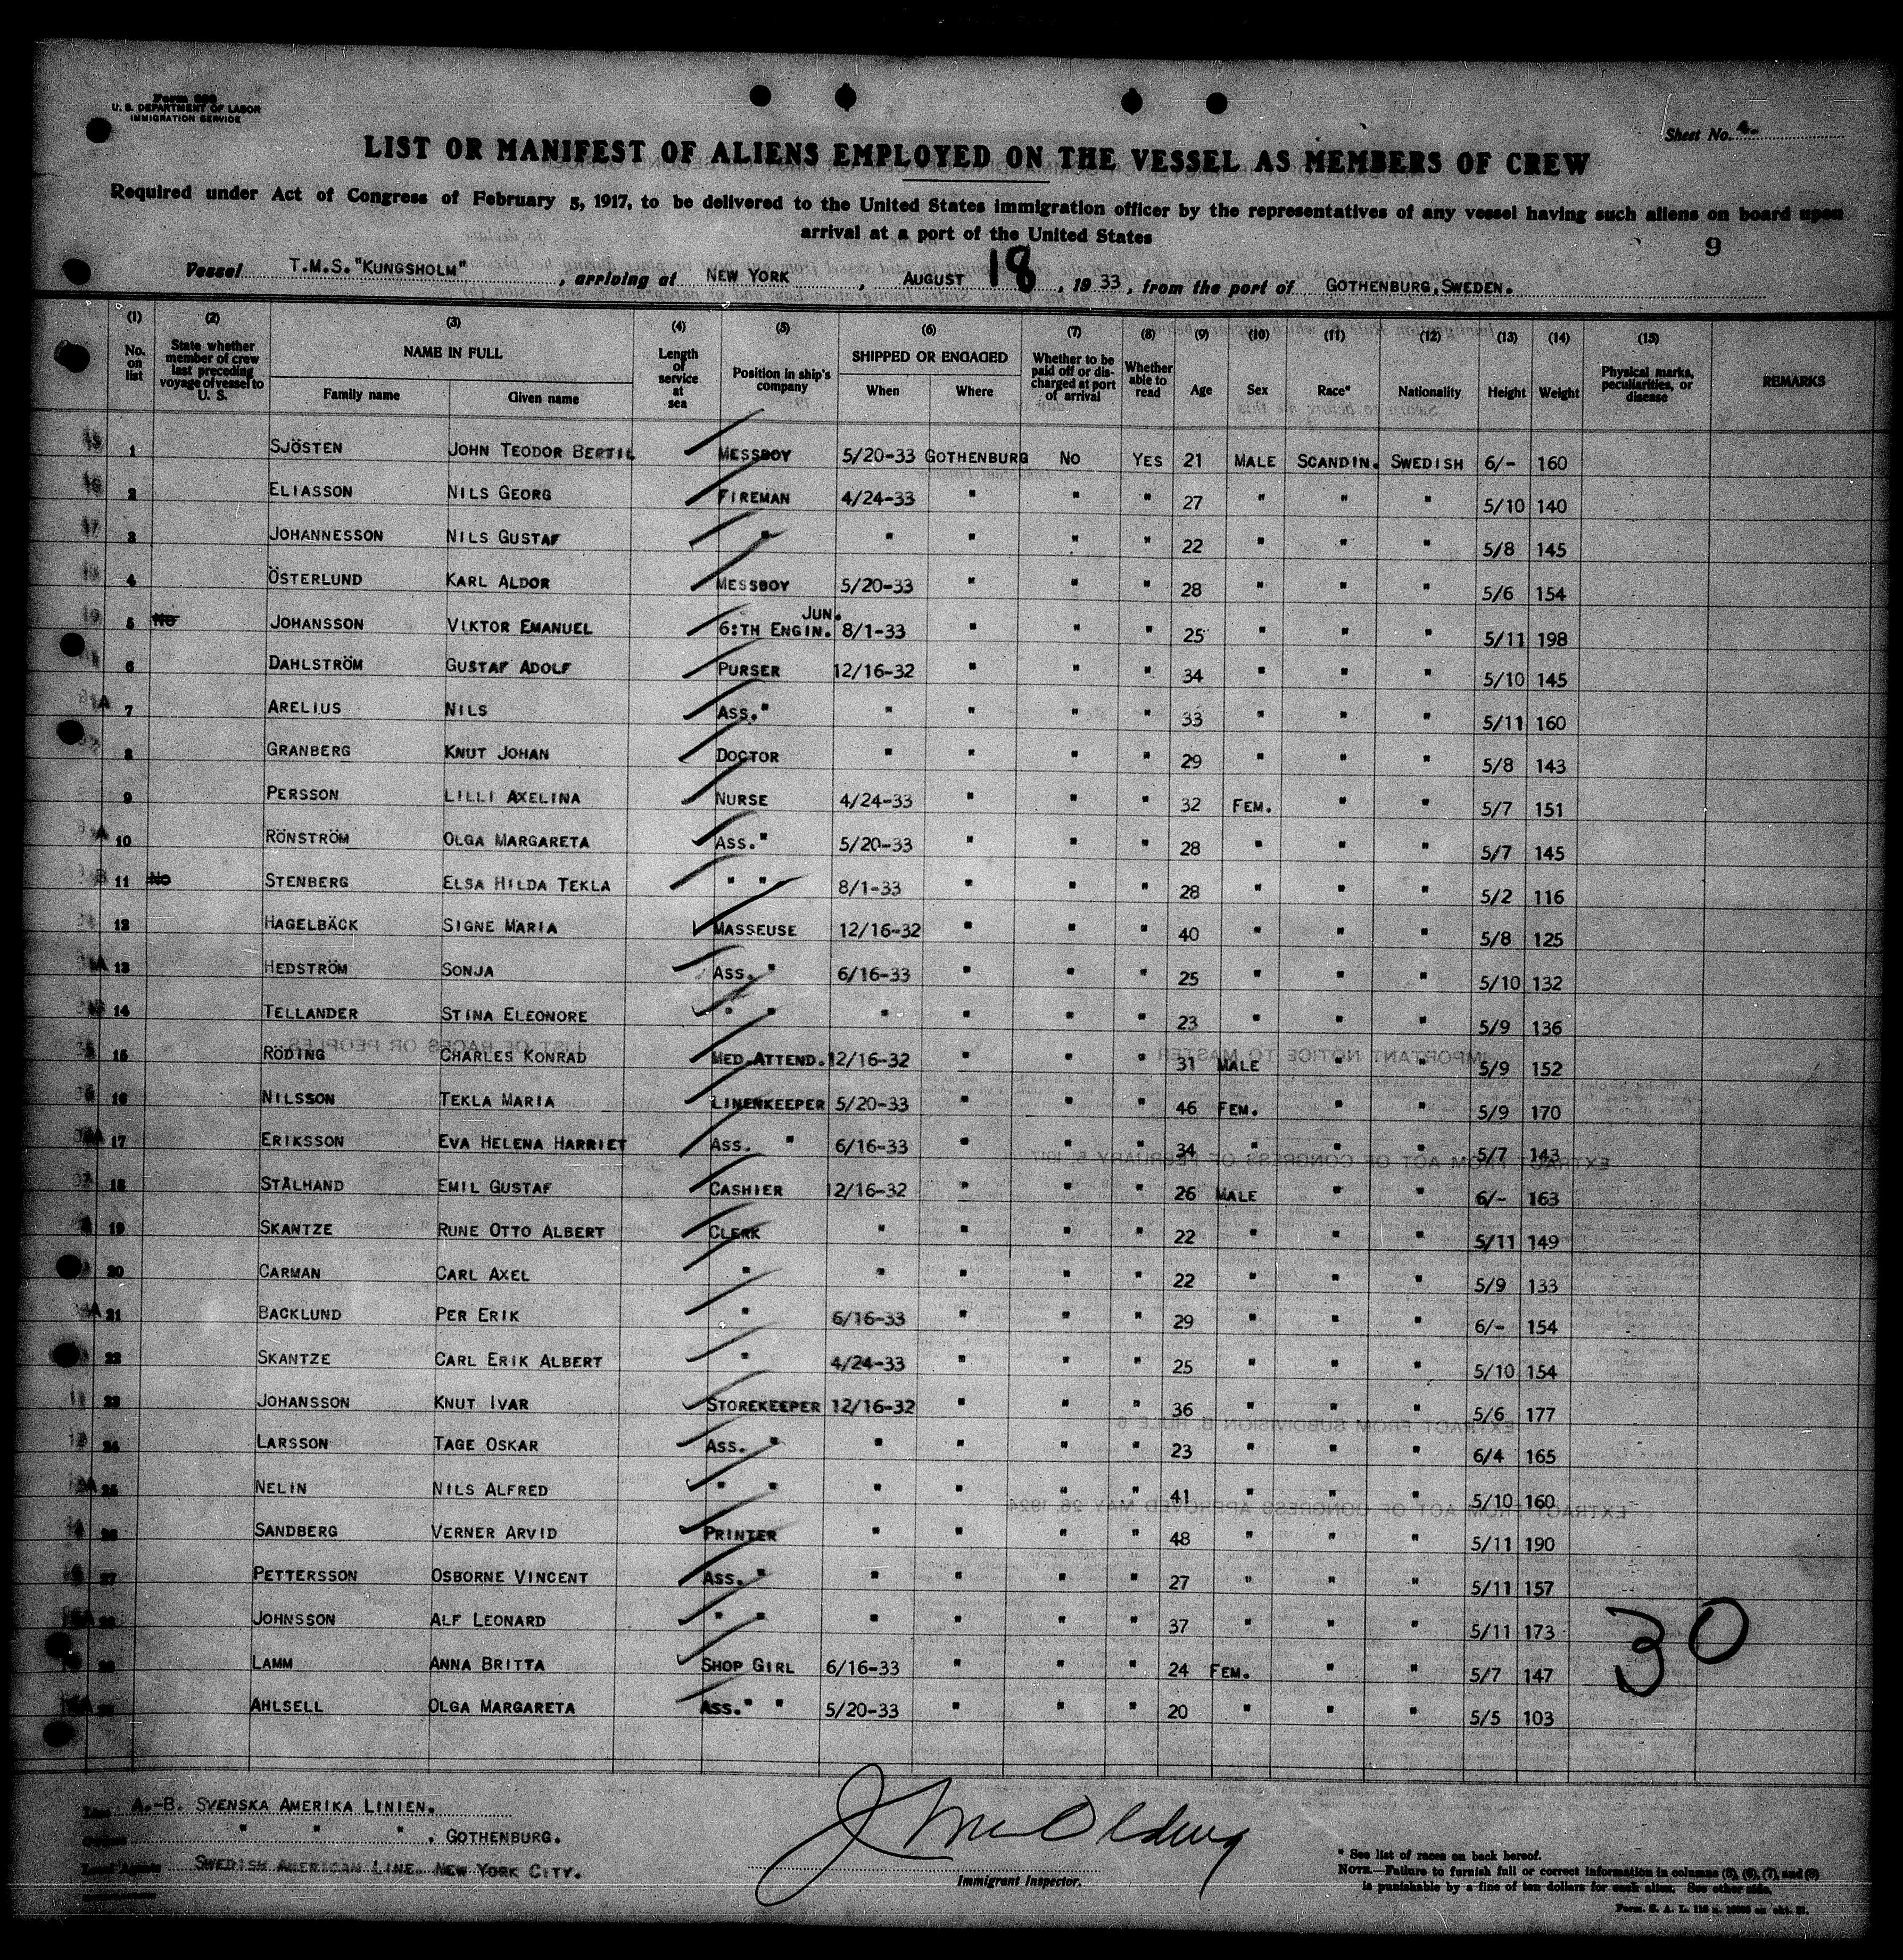 Form 680
U. S. DEPARTMENT OF LABOR
IMMIGRATION SERVICE
Sheet No. 4.
LIST OR MANIFEST OF ALIENS EMPLOYED ON THE VESSEL AS MEMBERS OF CREW
Required under Act of Congress of February 5, 1917, to be delivered to the United States immigration officer by the representatives of any vessel having such aliens on board upon
arrival at a port of the United States
9
Vessel T.M.S. "KUNGSHOLM", arriving at NEW YORK, AUGUST 18, 1933, from the port of GOTHENBURG, SWEDEN.
(1) (2) (3) (4) (5) (6) (7) (8) (9) (10) (11) (12) (13) (14) (15)
No. on list State whether member of crew last preceding voyage of vessel to U. S. NAME IN FULL Family name Given name Length of service at sea Position in ship's company SHIPPED OR ENGAGED When Where Whether to be paid off or discharged at port of arrival Whether able to read Age Sex Race* Nationality Height Weight Physical marks, peculiarities, or disease REMARKS
1 SJÖSTEN JOHN TEODOR BERTIL MESSBOY 5/20-33 GOTHENBURG NO YES 21 MALE SCANDIN. SWEDISH 6/- 160
2 ELIASSON NILS GEORG FIREMAN 4/24-33 " " " 27 " " " 5/10 140
3 JOHANNESSON NILS GUSTAF " " " " " 22 " " " 5/8 145
4 ÖSTERLUND KARL ALDOR MESSBOY 5/20-33 " " " 28 " " " 5/6 154
5 No JOHANSSON VIKTOR EMANUEL JUN. 6:TH ENGIN. 8/1-33 " " " 25 " " " 5/11 198
6 DAHLSTRÖM GUSTAF ADOLF PURSER 12/16-32 " " " 34 " " " 5/10 145
7 ARELIUS NILS ASS. " " " " " 33 " " " 5/11 160
8 GRANBERG KNUT JOHAN DOCTOR " " " " 29 " " " 5/8 143
9 PERSSON LILLI AXELINA NURSE 4/24-33 " " " 32 FEM. " " 5/7 151
10 RÖNSTRÖM OLGA MARGARETA ASS. " 5/20-33 " " " 28 " " " 5/7 145
11 No STENBERG ELSA HILDA TEKLA " " 8/1-33 " " " 28 " " " 5/2 116
12 HAGELBÄCK SIGNE MARIA MASSEUSE 12/16-32 " " " 40 " " " 5/8 125
13 HEDSTRÖM SONJA ASS. " 6/16-33 " " " 25 " " " 5/10 132
14 TELLANDER STINA ELEONORE " " " " " " 23 " " " 5/9 136
15 RÖDING CHARLES KONRAD MED.ATTEND. 12/16-32 " " " 31 MALE " " 5/9 152
16 NILSSON TEKLA MARIA LINENKEEPER 5/20-33 " " " 46 FEM. " " 5/9 170
17 ERIKSSON EVA HELENA HARRIET ASS. " 6/16-33 " " " 34 " " " 5/7 143
18 STÅLHAND EMIL GUSTAF CASHIER 12/16-32 " " " 26 MALE " " 6/- 163
19 SKANTZE RUNE OTTO ALBERT CLERK " " " " 22 " " " 5/11 149
20 CARMAN CARL AXEL " " " " " 22 " " " 5/9 133
21 BACKLUND PER ERIK " 6/16-33 " " " 29 " " " 6/- 154
22 SKANTZE CARL ERIK ALBERT " 4/24-33 " " " 25 " " " 5/10 154
23 JOHANSSON KNUT IVAR STOREKEEPER 12/16-32 " " " 36 " " " 5/6 177
24 LARSSON TAGE OSKAR ASS. " " " " " 23 " " " 6/4 165
25 NELIN NILS ALFRED " " " " " " 41 " " " 5/10 160
26 SANDBERG VERNER ARVID PRINTER " " " " 48 " " " 5/11 190
27 PETTERSSON OSBORNE VINCENT ASS. " " " " " 27 " " " 5/11 157
28 JOHNSSON ALF LEONARD " " " " " " 37 " " " 5/11 173
29 LAMM ANNA BRITTA SHOP GIRL 6/16-33 " " " 24 FEM. " " 5/7 147
30 AHLSELL OLGA MARGARETA ASS." " 5/20-33 " " " 20 " " " 5/5 103
30
Line A.-B. SVENSKA AMERIKA LINIEN.
Owners " " ". GOTHENBURG.
Local Agents SWEDISH AMERICAN LINE. NEW YORK CITY.
Immigrant Inspector.
* See list of races on back hereof.
NOTE.—Failure to furnish full or correct information in columns (3), (6), (7), and (8)
is punishable by a fine of ten dollars for each alien. See other side.